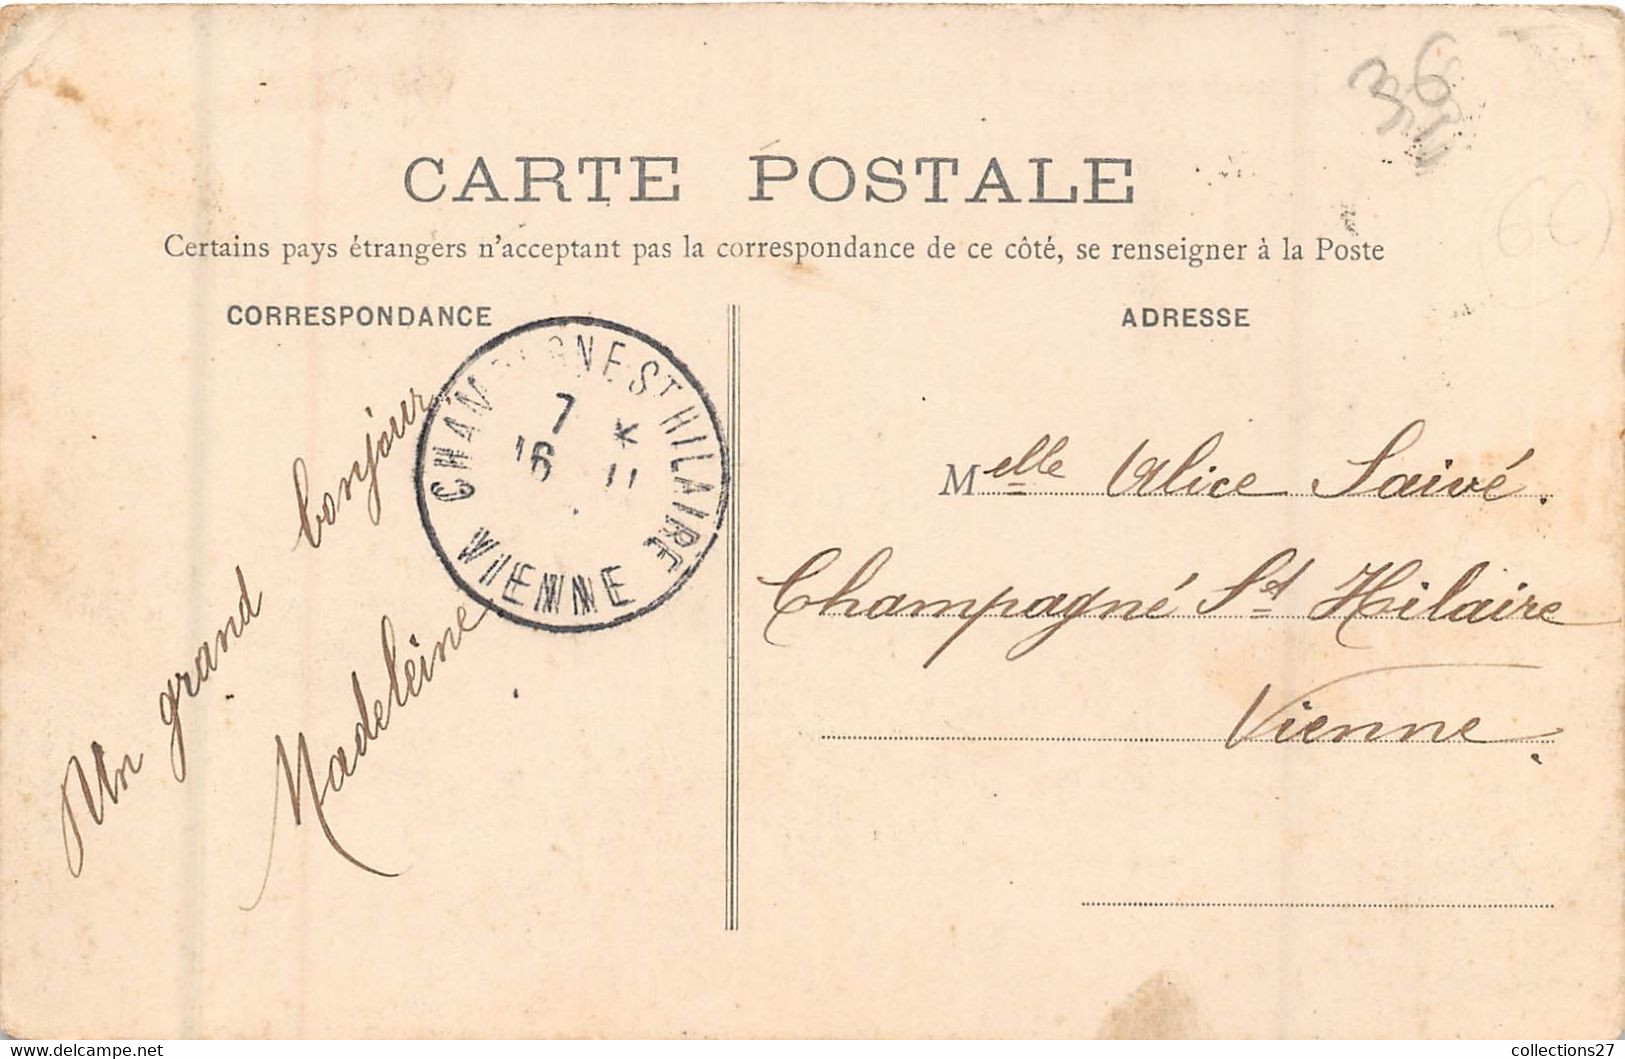 36
60
CARTE POSTALE
Certains pays étrangers n'acceptant pas la correspondance de ce côté, se renseigner à la Poste
CORRESPONDANCE
Un grand bonjour
Madeleine
CHAMPAGNE ST HILAIRE
7 *
16 11
VIENNE
ADRESSE
Melle Alice Saivé.
Champagné St Hilaire
Vienne.
collections27